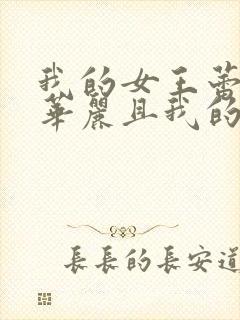 我的女王蕾
華麗且我的
長長的長安道